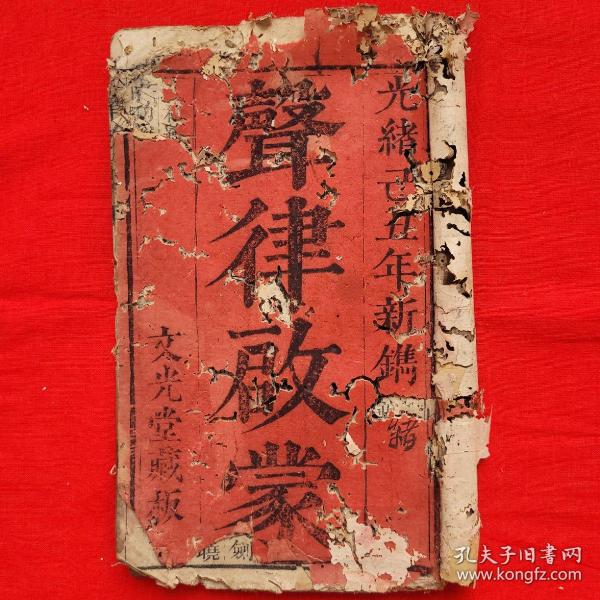 光緒己丑年新鐫
緒
聲律啟蒙
文光堂藏板
曉 劍
孔夫子旧书网
www.kongfz.com